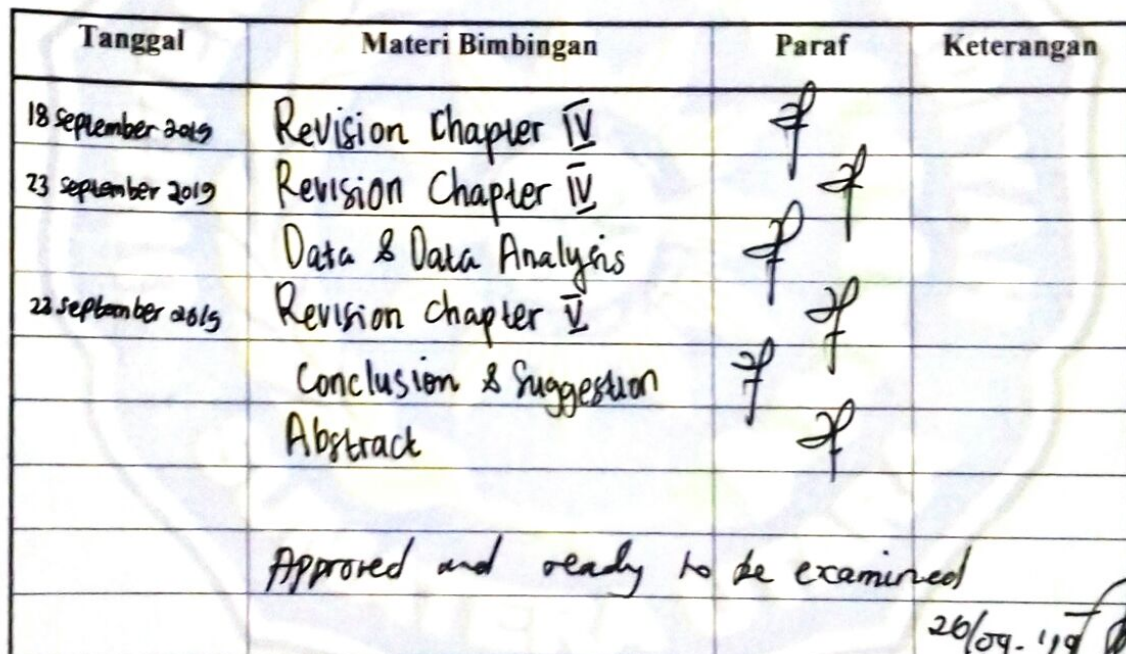 Tanggal Materi Bimbingan Paraf Keterangan
18 September 2019 Revision Chapter IV
23 september 2019 Revision Chapter IV
Data & Data Analysis
23 september 2019 Revision Chapter V
Conclusion & Suggestion
Abstract
Approved and ready to be examined
26/09-'19